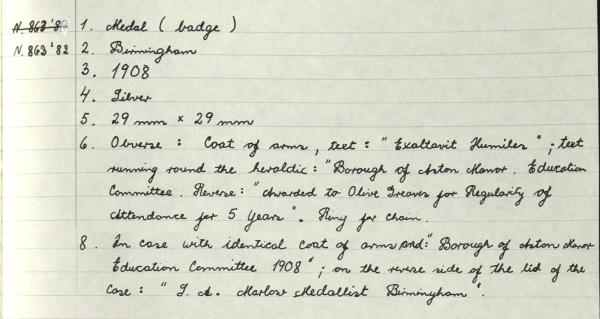 N. 863'8 1. Medal ( badge )
N. 863'82 2. Birmingham
3. 1908
4. Silver
5. 29 mm × 29 mm
6. Obverse : Coat of arms, teet : "Exaltavit Humiles" ; teet
running round the heraldic : "Borough of Aston Manor. Education
Committee. Reverse : "Awarded to Olive Greaves for Regularity of
Attendance for 5 Years". Ring for chain.
8. In case with identical coat of arms and: "Borough of Aston Manor
Education Committee 1908" ; on the reverse side of the lid of the
Case : " J. A. Marlow Medallist Birmingham ".